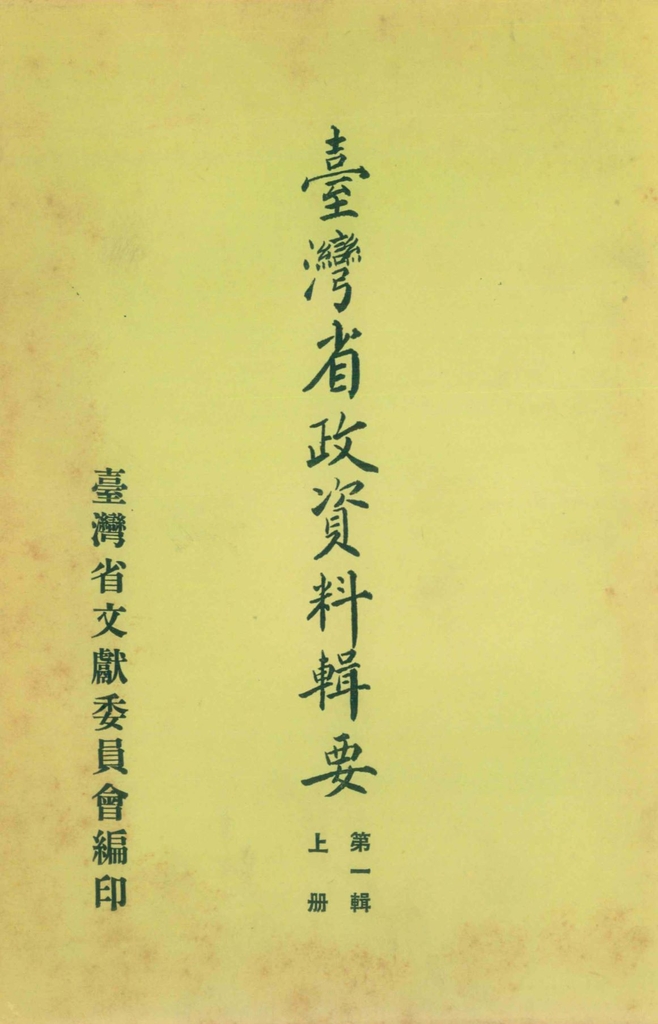 臺灣省政資料輯要
第一輯
上册
臺灣省文獻委員會編印